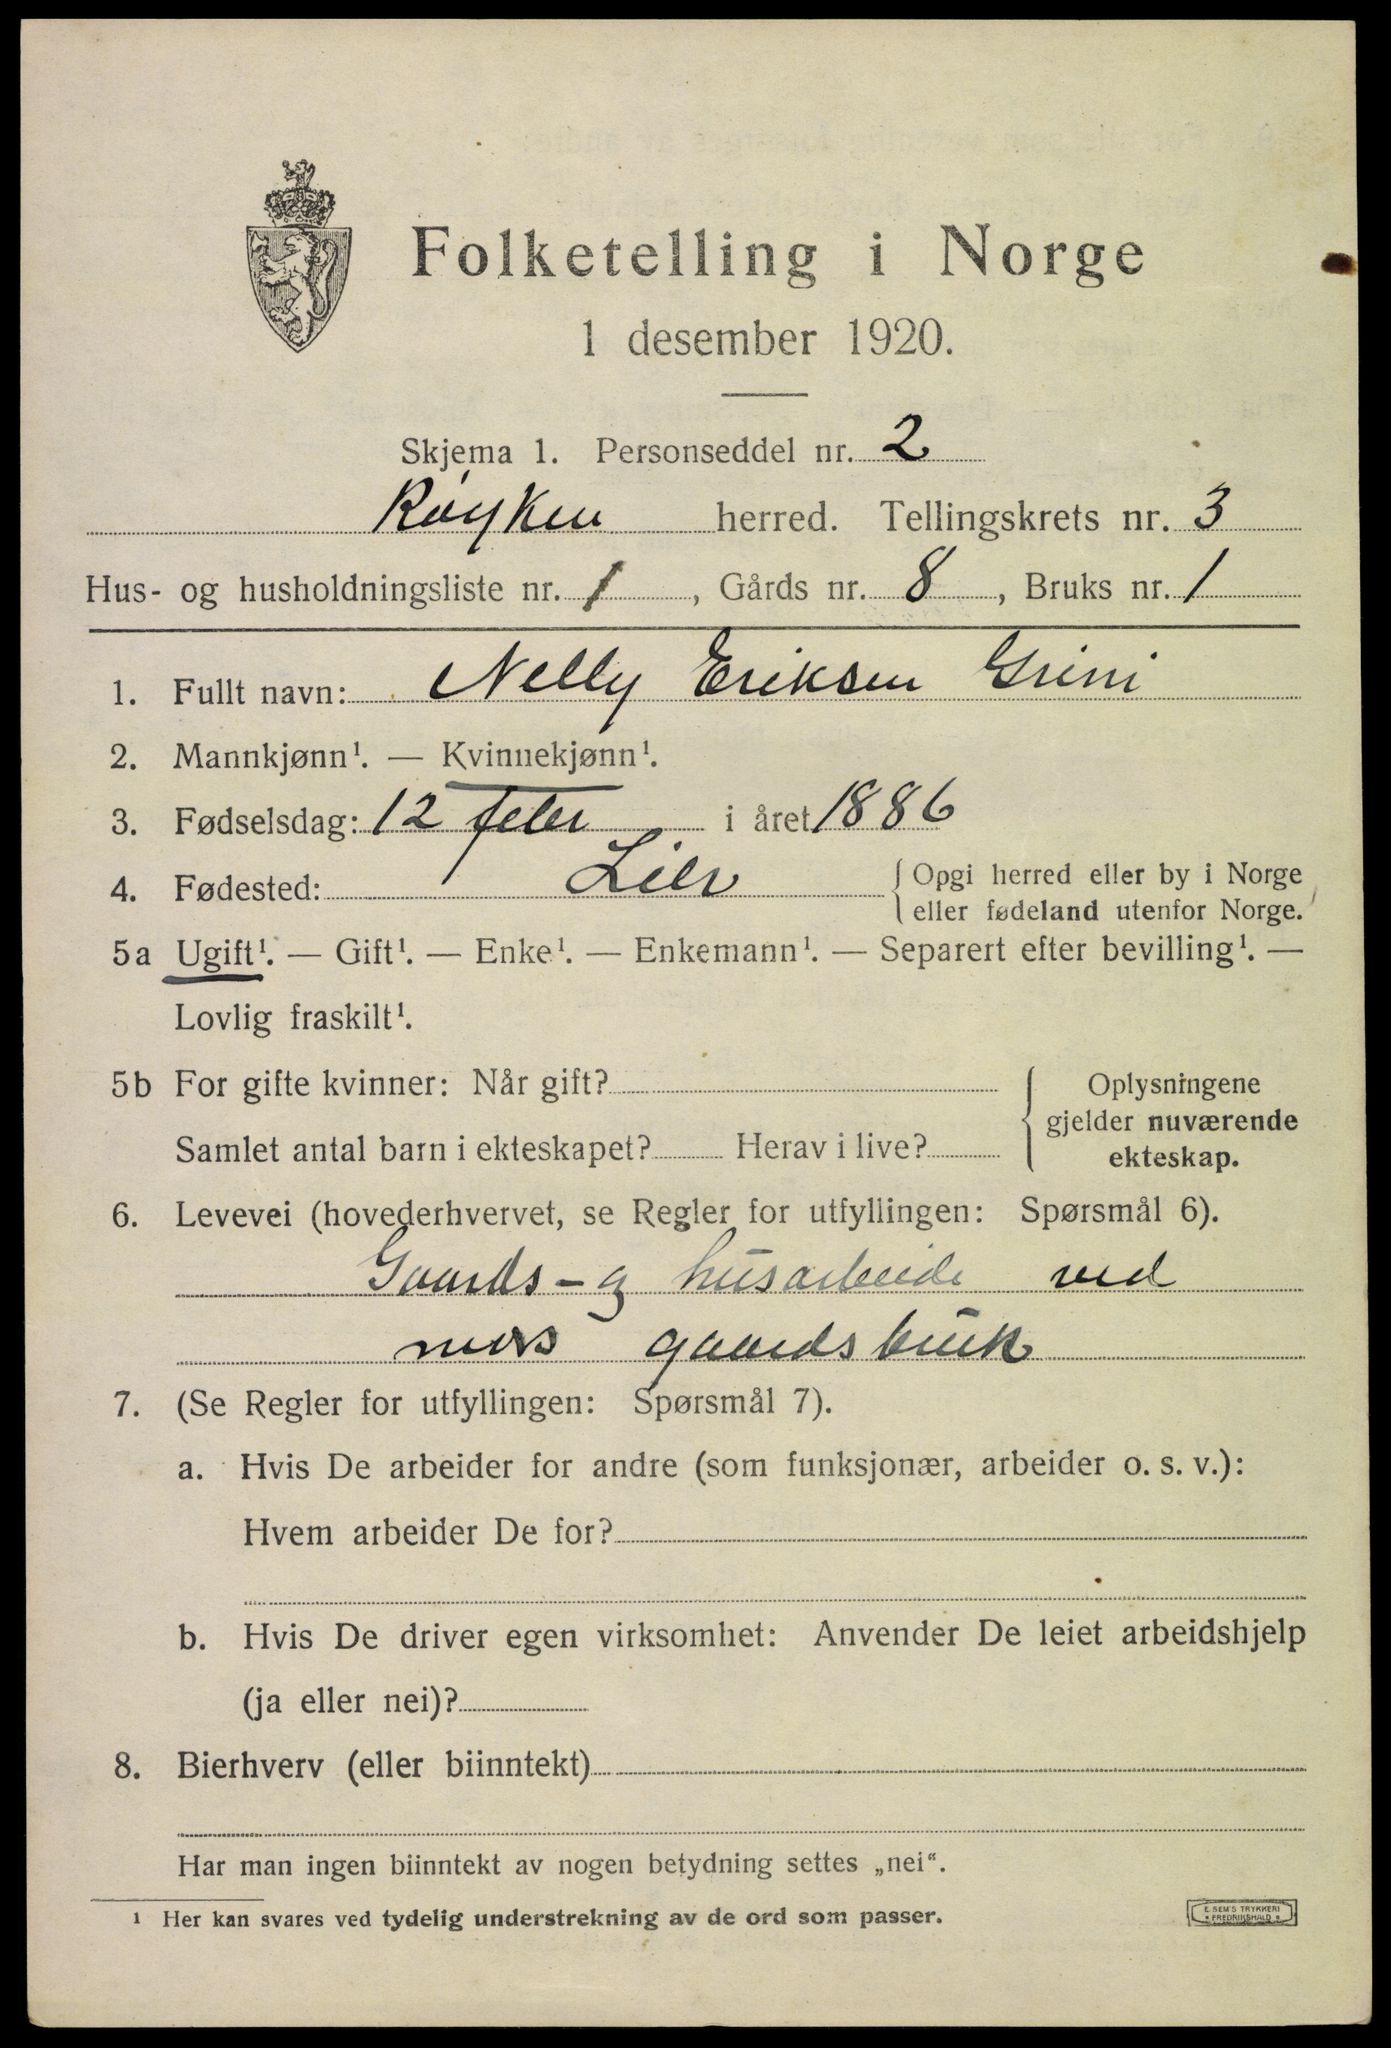 Folketelling i Norge
1 desember 1920.
Skjema 1. Personseddel nr. 2
Røyken herred. Tellingskrets nr. 3
Hus- og husholdningsliste nr. 1, Gårds nr. 8, Bruks nr. 1
1. Fullt navn: Nelly Eriksen Grini
2. Mannkjønn¹. — Kvinnekjønn¹.
3. Fødselsdag: 12 feber i året 1886
4. Fødested: Lier { Opgi herred eller by i Norge
eller fødeland utenfor Norge.
5a Ugift¹. — Gift¹. — Enke¹. — Enkemann¹. — Separert efter bevilling¹. —
Lovlig fraskilt¹.
5b For gifte kvinner: Når gift? { Oplysningene
gjelder nuværende
Samlet antal barn i ekteskapet? Herav i live?
ekteskap.
6. Levevei (hovederhvervet, se Regler for utfyllingen: Spørsmål 6).
Gaards- og husarbeide ved
mors gaardsbruk
7. (Se Regler for utfyllingen: Spørsmål 7).
a. Hvis De arbeider for andre (som funksjonær, arbeider o. s. v.):
Hvem arbeider De for?
b. Hvis De driver egen virksomhet: Anvender De leiet arbeidshjelp
(ja eller nei)?
8. Bierhverv (eller biinntekt)
Har man ingen biinntekt av nogen betydning settes „nei“.
¹ Her kan svares ved tydelig understrekning av de ord som passer.
E. SEM'S TRYKKERI
• FREDRIKSHALD •